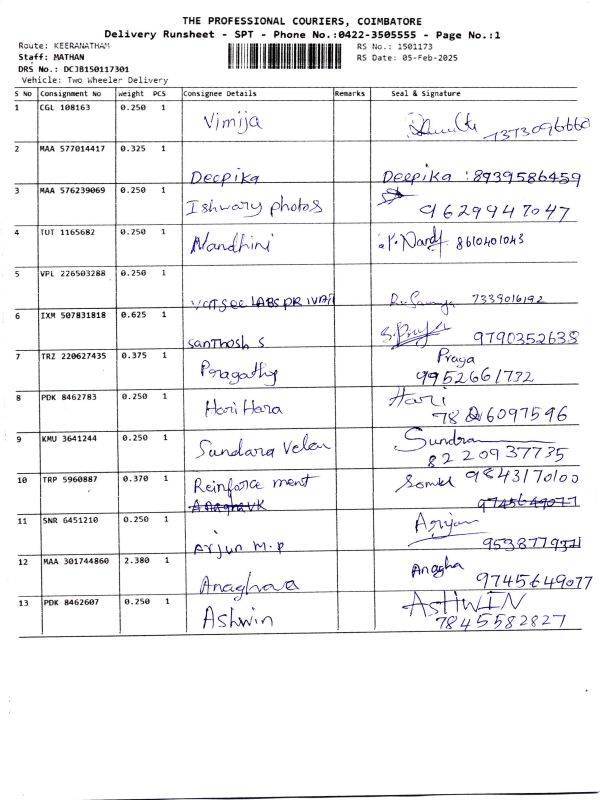 THE PROFESSIONAL COURIERS, COIMBATORE
Delivery Runsheet - SPT - Phone No.:0422-3505555 - Page No.:1
Route: KEERANATHAM RS No.: 1501173
Staff: MATHAN RS Date: 05-Feb-2025
DRS No.: DCJB150117301
Vehicle: Two Wheeler Delivery
S No Consignment No Weight PCS Consignee Details Remarks Seal & Signature
1 CGL 108163 0.250 1
Vimija 7373096660
2 MAA 577014417 0.325 1
Deepika Deepika : 8939586459
3 MAA 576239069 0.250 1
Ishwary photos 9629947047
4 TUT 1165682 0.250 1
Nandhini 8610401043
5 VPL 226503288 0.250 1
7339016192
6 IXM 507831818 0.625 1
Santhosh S 9790352638
7 TRZ 220627435 0.375 1 Praga
Peragathy 9952661732
8 PDK 8462783 0.250 1 Hari
Hari Hara 78 26097596
9 KMU 3641244 0.250 1 Sundra
Sundara Velan 8220937735
10 TRP 5960887 0.370 1
Reinforce ment 9843170100
AnaghaVK 9745649077
11 SNR 6451210 0.250 1 Arjun
Arjun M.P 9538779371
12 MAA 301744860 2.380 1 Anagha
Anaghava 9745649077
13 PDK 8462607 0.250 1 ASHWIN
Ashwin 7845582827